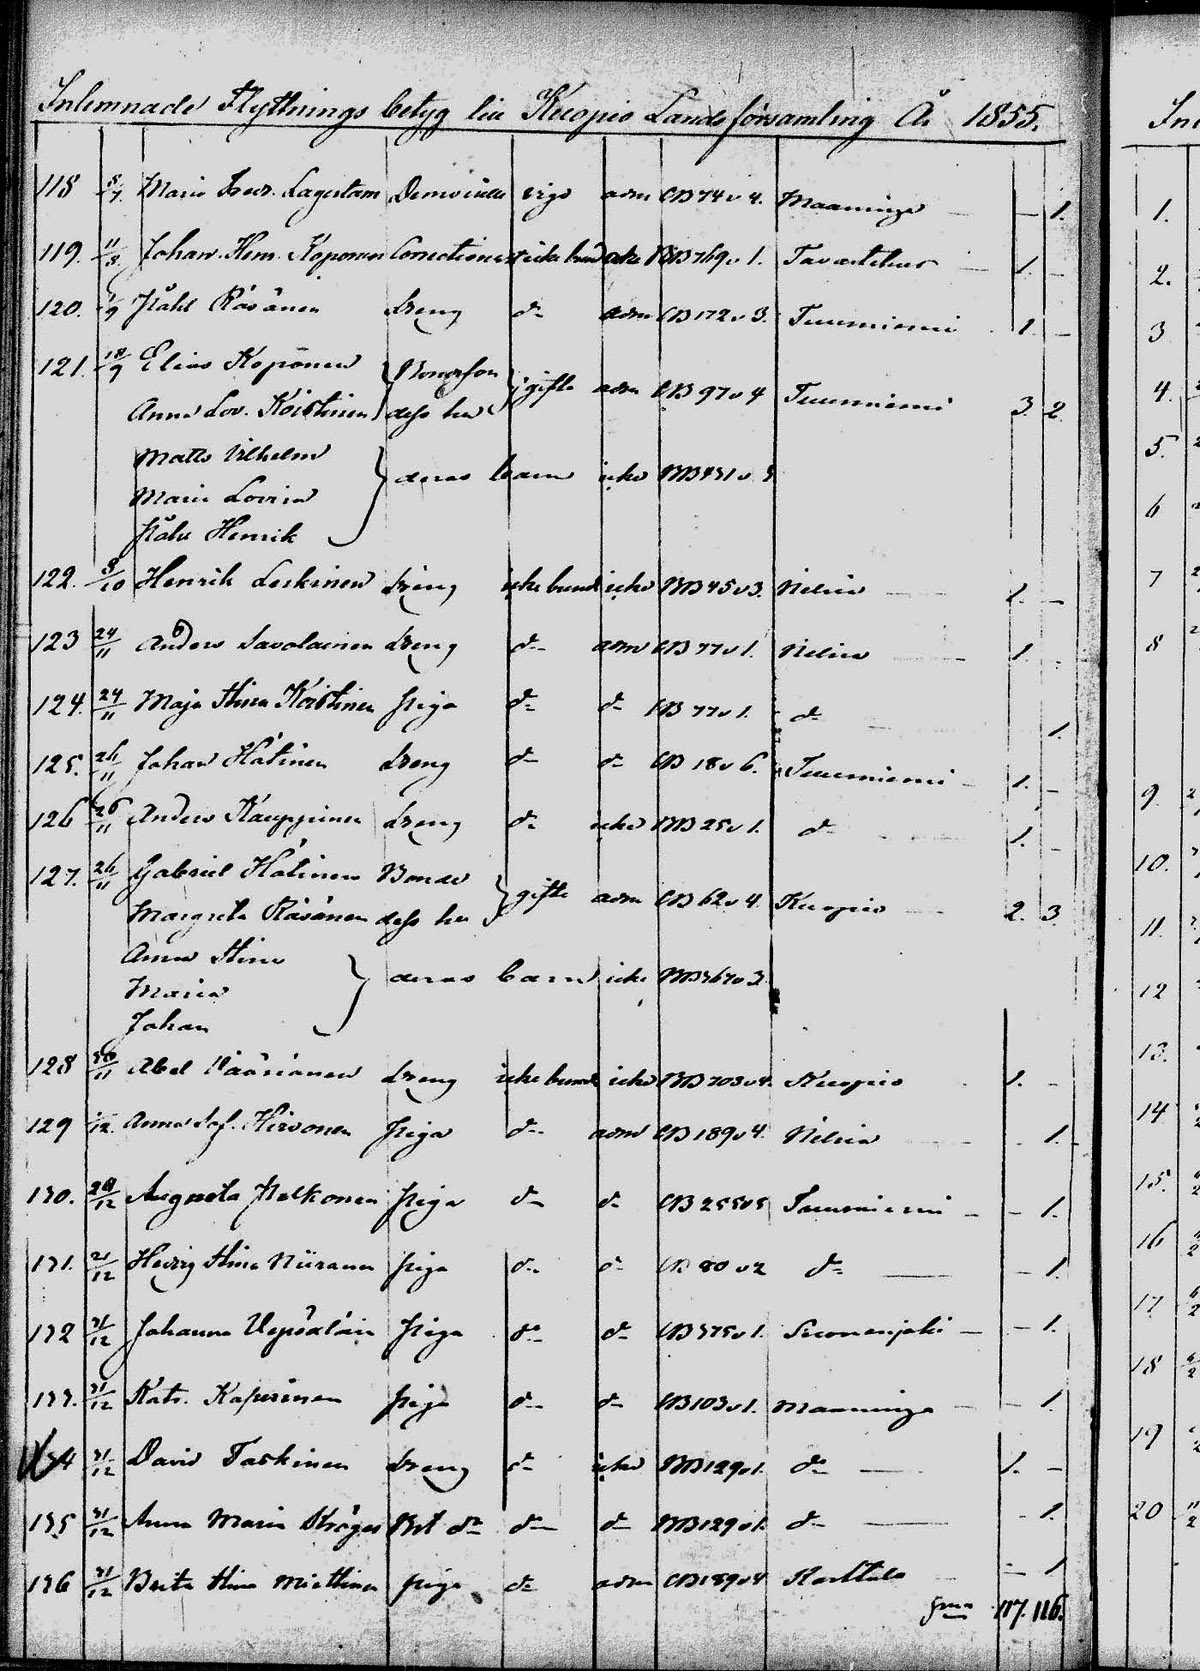 Inlemnade Flyttnings betyg till Kuopio Landsförsamling År 1855.
118 8/7. Maria Lagerstam Demoiselle ogo adm CB 74 v 4. Maaninga — — 1.
119. 11/8 Johan Hen. Koponen icke bund icke BB 769 v 1. Tavastehus — 1. —
120. /9 Påhl Räsänen dreng do adm CB 172 v 3. Tuusniemi 1. —
121. 18/9 Elias Koponen Bondeson gifte adm CB 97 v 4 Tuusniemi 3. 2.
Anna Lov. Koistinen dess hu
Matts Vilhelm
Maria Lovisa deras barn icke BB 431 v 3
Påhl Henrik
122. 8/10 Henrik Leskinen dreng icke bund icke BB 45 v 3. Nilsiä — 1. —
123 24/11 Anders Savolainen dreng do adm CB 77 v 1. Nilsiä 1. -
124. 24/11 Maja Stina Koistinen piga do do CB 77 v 1. do 1.
125. 26/11 Johan Hätinen dreng do do CB 18 v 6. Tuusniemi - 1. -
126 26/11 Anders Kauppinen dreng do icke BB 25 v 1. do 1. -
127. 26/11 Gabriel Hätinen Bonde gifte adm CB 62 v 4. Kuopio 2. 3.
Margreta Räsänen dess hu
Anna Stina
Maria deras barn icke BB 367 v 3
Johan
128 30/11 Abel Vääränen dreng icke bund icke BB 703 v 4. Kuopio 1. -
129 /12. Anna Sof. Hirvonen piga do adm CB 189 v 4. Nilsiä - 1.
130. 20/12 Augusta Pelkonen piga do do CB 255 v 5 Tuusniemi — — 1.
131. 21/12 Hedvig Stina Niiranen piga do do CB 80 v 2 do — — 1.
132 31/12 Johanna Vepsäläin piga do do CB 375 v 1. Suonenjoki — — 1.
133. 31/12 Kats. piga do do CB 103 v 1. Maaninga — — 1.
134 31/12 David Taskinen dreng do icke BB 129 v 1. do — 1. —
135 31/12 Anna Maria Kröger do do do BB 129 v 1. do — - 1.
136 31/12 Brita Stina Miettinen piga do adm CB 189 v 4 Karttula — 1
Sma 117. 116.
In
1.
2.
3
4.
5.
6
7
8
9.
10.
11.
12
13.
14
15.
16
17
18
19
20